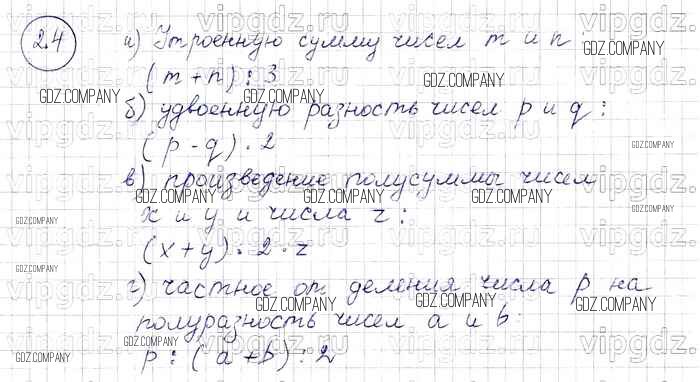 2.4
а) Утроенную сумму чисел m и n
(m+n) : 3
б) удвоенную разность чисел p и q :
(p - q) . 2
в) произведение полусуммы чисел
x и y и числа z :
(x+y) : 2 · z
г) частное от деления числа p на
полуразность чисел a и b :
p : (a+b) : 2
vipgdz.ru
GDZ.COMPANY